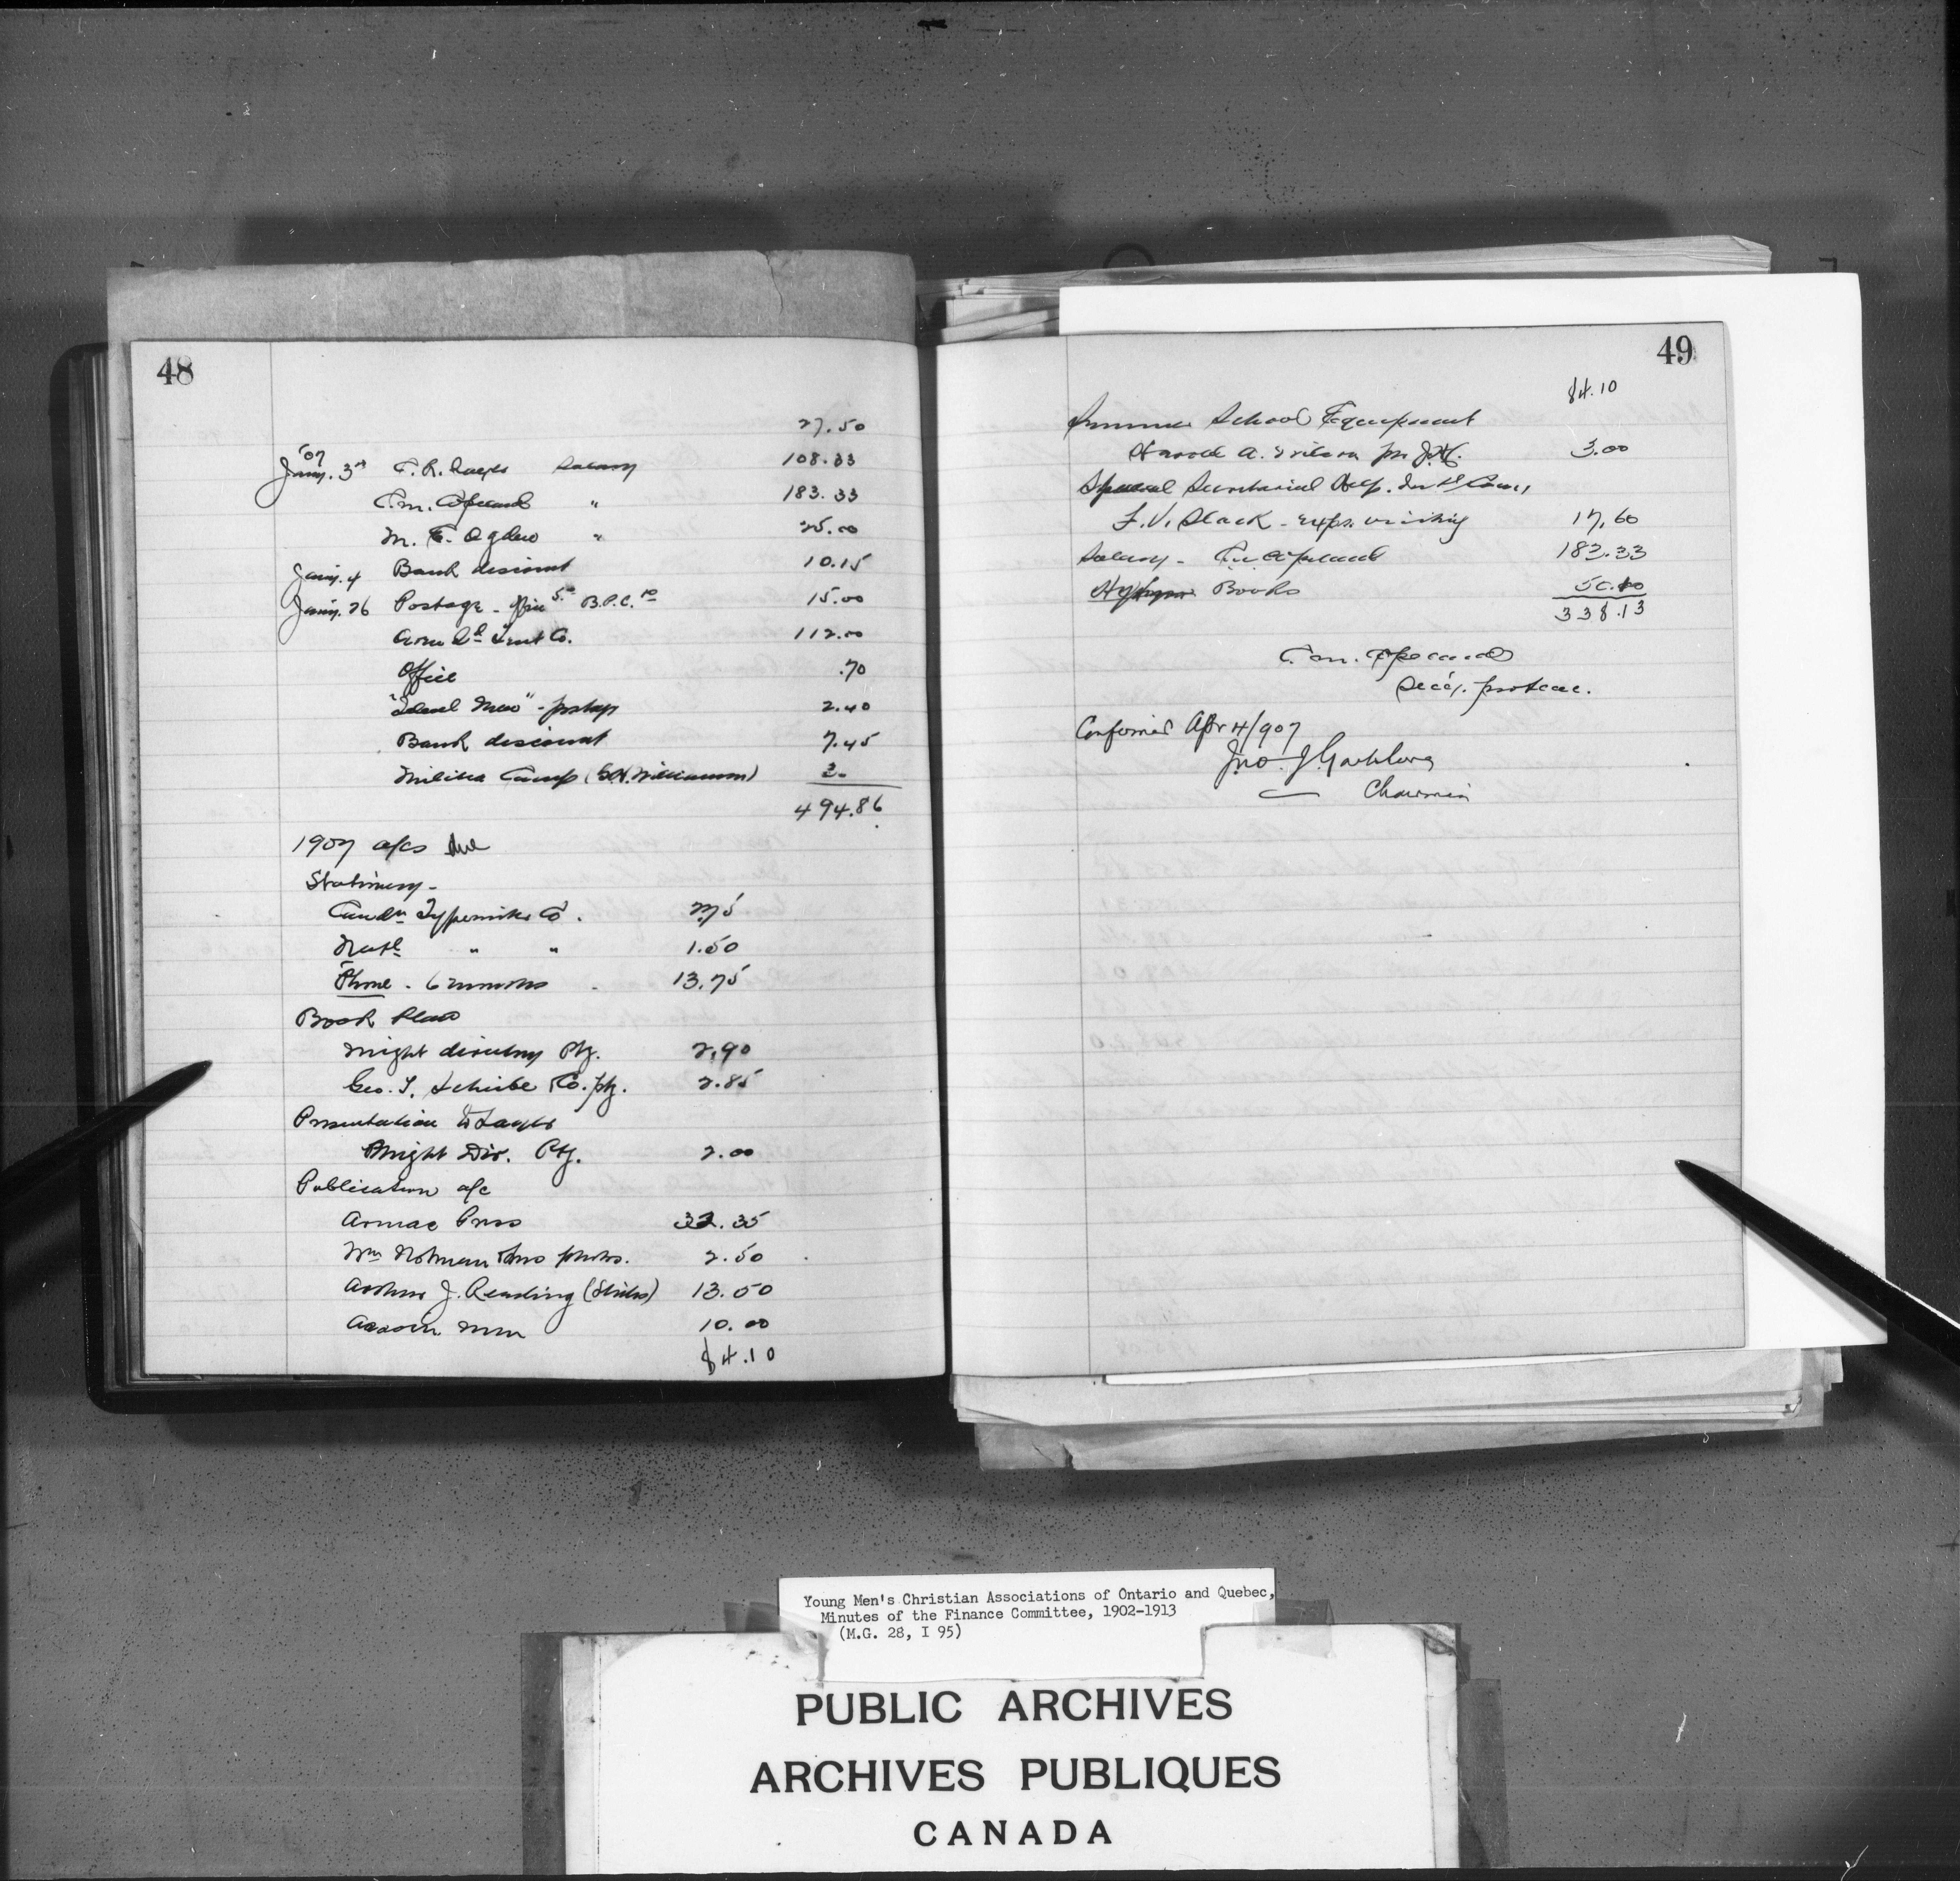 48
27.50
'07
Jany. 3rd F. R. Sayer Salary 108.33
C. M. Copeland " 183.33
M. E. Ogden " 25.00
Jany. 4 Bank discount 10.15
Jany. 26 Postage - Office 5.00 B.P.C. 10 15.00
Tent Co. 112.00
Office .70
" - postage 2.40
Bank discount 7.45
Militia Camp (Williamson) 3.-
494.86
1907 a/cs due
Stationery -
Candn Typewriter Co. 2.75
Natl " " 1.50
Phone - 6 months 13.75
Book Plan
Might directory Ptg. 2.90
Geo. T. Co. ptg. 2.85
Presentation to
Might Dir. Ptg. 2.00
Publication a/c
Armac Press 32.35
Wm Notman photos. 2.50
Arthur J. Reading 13.50
Assocn. Men 10.00
84.10
49
84.10
Summer School Equipment
Harold A. Wilson 3.00
Special Secretarial Help.
F. V. Slack - exps. visiting 17.60
Salary - C. M. Copeland 183.33
Books 50.10
338.13
C. M. Copeland
Secy. protem.
Confirmed Apr 4/907
Jno. J. Gartshore
Chairman
Young Men's Christian Associations of Ontario and Quebec,
Minutes of the Finance Committee, 1902-1913
(M.G. 28, I 95)
PUBLIC ARCHIVES
ARCHIVES PUBLIQUES
CANADA